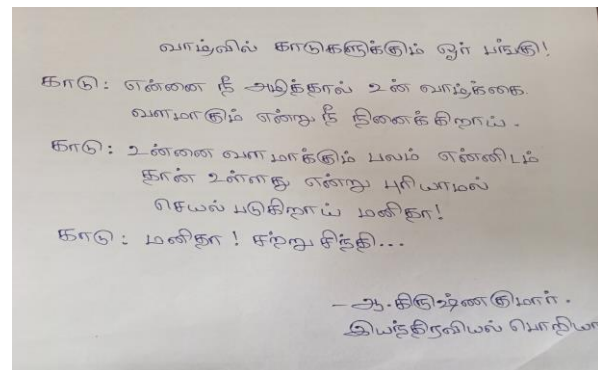 வாழ்வில் காடுகளுக்கும் ஓர் பங்கு!
காடு: என்னை நீ அழித்தால் உன் வாழ்க்கை
வளமாகும் என்று நீ நினைக்கிறாய்.
காடு: உன்னை வளமாக்கும் பலம் என்னிடம்
தான் உள்ளது என்று புரியாமல்
செயல் படுகிறாய் மனிதா!
காடு: மனிதா! சற்று சிந்தி...
-ஆ.கிருஷ்ணகுமார்.
இயந்திரவியல் பொறியா